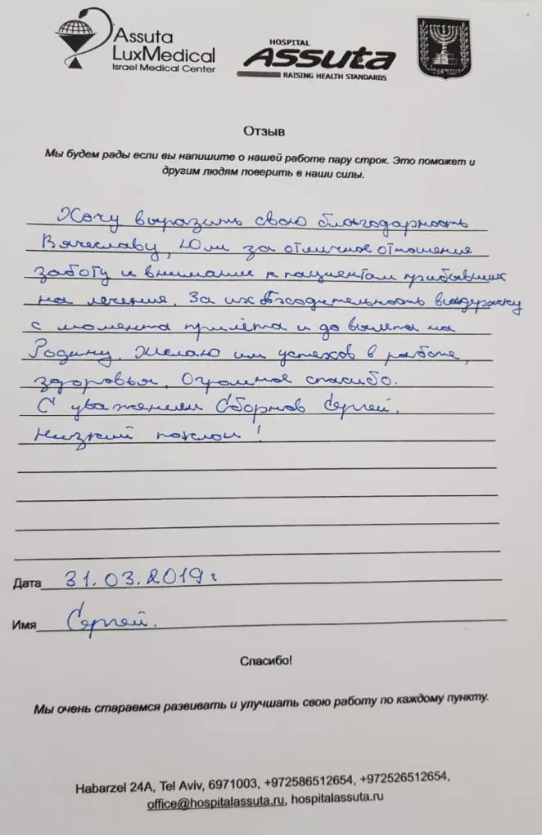 Assuta
LuxMedical
Israel Medical Center
HOSPITAL
Assuta
RAISING HEALTH STANDARDS
Отзыв
Мы будем рады если вы напишите о нашей работе пару строк. Это поможет и
другим людям поверить в наши силы.
Хочу выразить свою благодарность
Вячеславу, Юли за отличное отношения
заботу и внимание к пациентам прибывших
на лечения. За их выдержку
с момента прилёта и до вылета на
Родину. Желаю им успехов в работе,
здоровья, Огромное спасибо.
С уважением Сборнов Сергей.
Низкий поклон!
Дата 31.03.2019г
Имя Сергей.
Спасибо!
Мы очень стараемся развивать и улучшать свою работу по каждому пункту.
Habarzel 24A, Tel Aviv, 6971003, +972586512654, +972526512654,
office@hospitalassuta.ru, hospitalassuta.ru